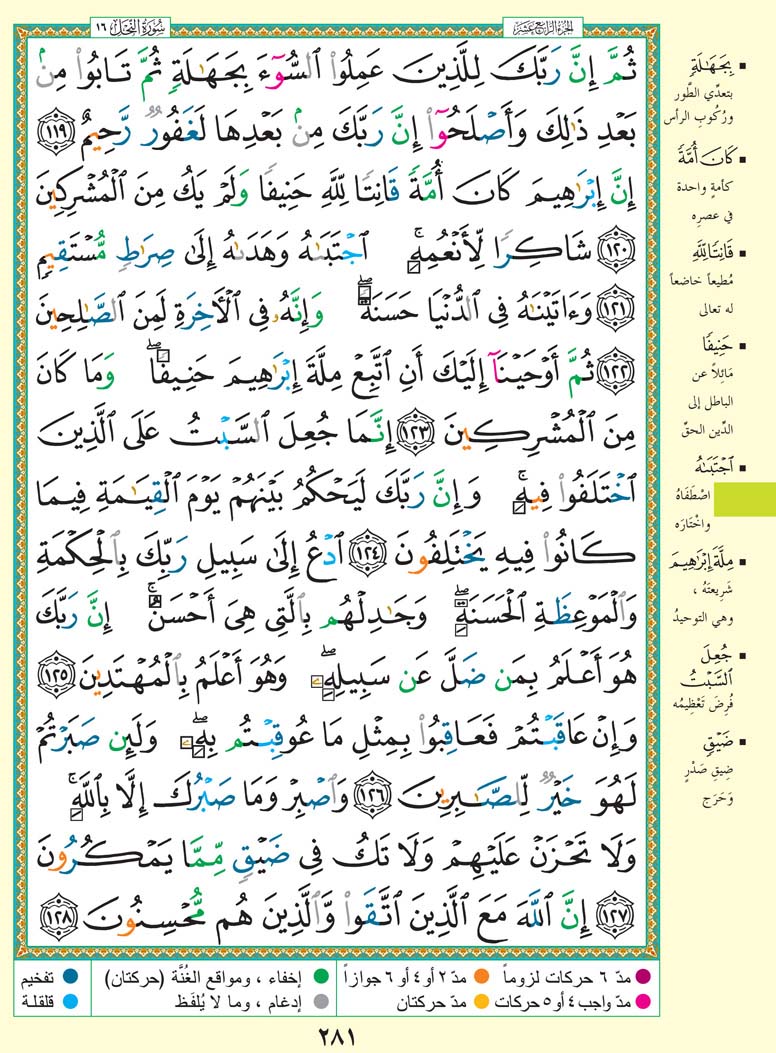 سُورَةُ النَّحْلِ ١٦
الجُزْءُ الرَّابِعَ عَشَرَ
ثُمَّ إِنَّ رَبَّكَ لِلَّذِينَ عَمِلُوا۟ ٱلسُّوٓءَ بِجَهَـٰلَةٍ ثُمَّ تَابُوا۟ مِنۢ
بَعْدِ ذَٰلِكَ وَأَصْلَحُوٓا۟ إِنَّ رَبَّكَ مِنۢ بَعْدِهَا لَغَفُورٌ رَّحِيمٌ ١١٩
إِنَّ إِبْرَٰهِيمَ كَانَ أُمَّةً قَانِتًا لِّلَّهِ حَنِيفًا وَلَمْ يَكُ مِنَ ٱلْمُشْرِكِينَ
١٢٠ شَاكِرًا لِّأَنْعُمِهِ ۚ ٱجْتَبَىٰهُ وَهَدَىٰهُ إِلَىٰ صِرَٰطٍ مُّسْتَقِيمٍ
١٢١ وَءَاتَيْنَـٰهُ فِى ٱلدُّنْيَا حَسَنَةً ۖ وَإِنَّهُۥ فِى ٱلْـَٔاخِرَةِ لَمِنَ ٱلصَّـٰلِحِينَ
١٢٢ ثُمَّ أَوْحَيْنَآ إِلَيْكَ أَنِ ٱتَّبِعْ مِلَّةَ إِبْرَٰهِيمَ حَنِيفًا ۖ وَمَا كَانَ
مِنَ ٱلْمُشْرِكِينَ ١٢٣ إِنَّمَا جُعِلَ ٱلسَّبْتُ عَلَى ٱلَّذِينَ
ٱخْتَلَفُوا۟ فِيهِ ۚ وَإِنَّ رَبَّكَ لَيَحْكُمُ بَيْنَهُمْ يَوْمَ ٱلْقِيَـٰمَةِ فِيمَا
كَانُوا۟ فِيهِ يَخْتَلِفُونَ ١٢٤ ٱدْعُ إِلَىٰ سَبِيلِ رَبِّكَ بِٱلْحِكْمَةِ
وَٱلْمَوْعِظَةِ ٱلْحَسَنَةِ ۖ وَجَـٰدِلْهُم بِٱلَّتِى هِىَ أَحْسَنُ ۚ إِنَّ رَبَّكَ
هُوَ أَعْلَمُ بِمَن ضَلَّ عَن سَبِيلِهِۦ ۖ وَهُوَ أَعْلَمُ بِٱلْمُهْتَدِينَ ١٢٥
وَإِنْ عَاقَبْتُمْ فَعَاقِبُوا۟ بِمِثْلِ مَا عُوقِبْتُم بِهِۦ ۖ وَلَئِن صَبَرْتُمْ
لَهُوَ خَيْرٌ لِّلصَّـٰبِرِينَ ١٢٦ وَٱصْبِرْ وَمَا صَبْرُكَ إِلَّا بِٱللَّهِ ۚ
وَلَا تَحْزَنْ عَلَيْهِمْ وَلَا تَكُ فِى ضَيْقٍ مِّمَّا يَمْكُرُونَ
١٢٧ إِنَّ ٱللَّهَ مَعَ ٱلَّذِينَ ٱتَّقَوا۟ وَّٱلَّذِينَ هُم مُّحْسِنُونَ ١٢٨
▪ بِجَهَـٰلَةٍ
بتعدِّي الطَّور
ورُكُوبِ الرأس
▪ كَانَ أُمَّةً
كأمةٍ واحدة
في عصرِه
▪ قَانِتًا لِلَّهِ
مُطيعاً خاضعاً
له تعالى
▪ حَنِيفًا
مَائِلاً عن
الباطل إلى
الدِّين الحقّ
▪ ٱجْتَبَىٰهُ
اصْطَفَاهُ
واخْتَارَه
▪ مِلَّةَ إِبْرَٰهِيمَ
شَرِيعَتَهُ ،
وهي التوحيدُ
▪ جُعِلَ
ٱلسَّبْتُ
فُرِضَ تَعْظِيمُه
▪ ضَيْقٍ
ضِيقِ صَدْرٍ
وَحَرَج
مدّ ٦ حركات لزوماً
مدّ ٢ أو ٤ أو ٦ جوازاً
إخفاء ، ومواقع الغُنَّة (حركتان)
تفخيم
مدّ واجب ٤ أو ٥ حركات
مدّ حركتان
إدغام ، وما لا يُلفَظ
قلقلة
٢٨١